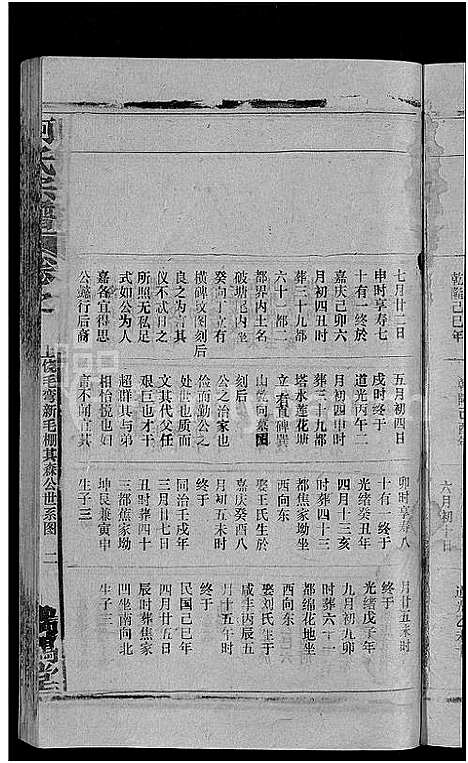 七月廿二日
申时享寿七
十有一终於
嘉庆己卯六
月初四丑时
葬三十九都
六十一都二
都界内土名
破塘尾内坐
癸向丁立有
横碑坟图刻后
良之为言其
仪不忒日之
所照无私足
式如公为人
嘉各宜得思
公懿行后裔
五月初四日
戌时终于
道光丙午二
月初四申时
葬三十九都
塔水莲花塘
立有直碑巽
山乾向墓图
刻后
公之治家也
俭而勤公之
处世也质而
文其代父任
艰巨也才品
超群其与弟
相怡悦也如
言不闻宜其
卯时享寿八
十有一终于
光绪癸丑年
四月十三亥
时葬四十三
都焦家坳坐
西向东
娶王氏生於
嘉庆癸酉八
月初五未时
终于
同治壬戌年
三月廿七日
丑时葬四十
三都焦家坳
坤艮兼寅申
生子三
月廿五未时
终于
光绪戊子年
九月初九卯
时葬六十一
都绵花地坐
西向东
娶刘氏生于
咸丰丙辰五
月十五午时
终于
民国己巳年
四月廿五日
辰时葬焦家
凹坐南向北
生子三
何氏宗谱
卷之一
上饶毛弯新毛棚其森公世系图
二
乾隆己巳年
六月初一日